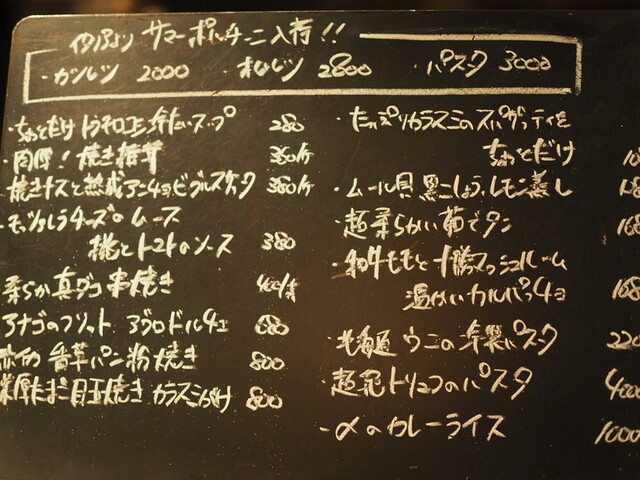 イタリアより サマーポルチーニ入荷!!
・カツレツ 2000 ・オムレツ 2800 ・パスタ 3000
・ちょとだけ トウモロコシ冷たいスープ 280
・肉厚!焼き椎茸 360/ケ
焼きナスと熟成アンチョビブルスケッタ 380/ケ
・モッツァレラチーズのムース
桃とトマトのソース 380
柔らか真ダコ串焼き 400/本
アナゴのフリット アグロドルチェ 680
香草パン粉焼き 800
たまご目玉焼き カラスミがけ 800
・たっぷりカラスミのスパゲッティを
ちょとだけ
・ムール貝 黒こしょう、レモン蒸し
・超柔らかい茹でタン
・和牛ももと十勝マッシュルーム
温かいカルパッチョ
・北海道 ウニの冷製パスタ 220
・超定トリュフのパスタ 400
・〆のカレーライス 1000